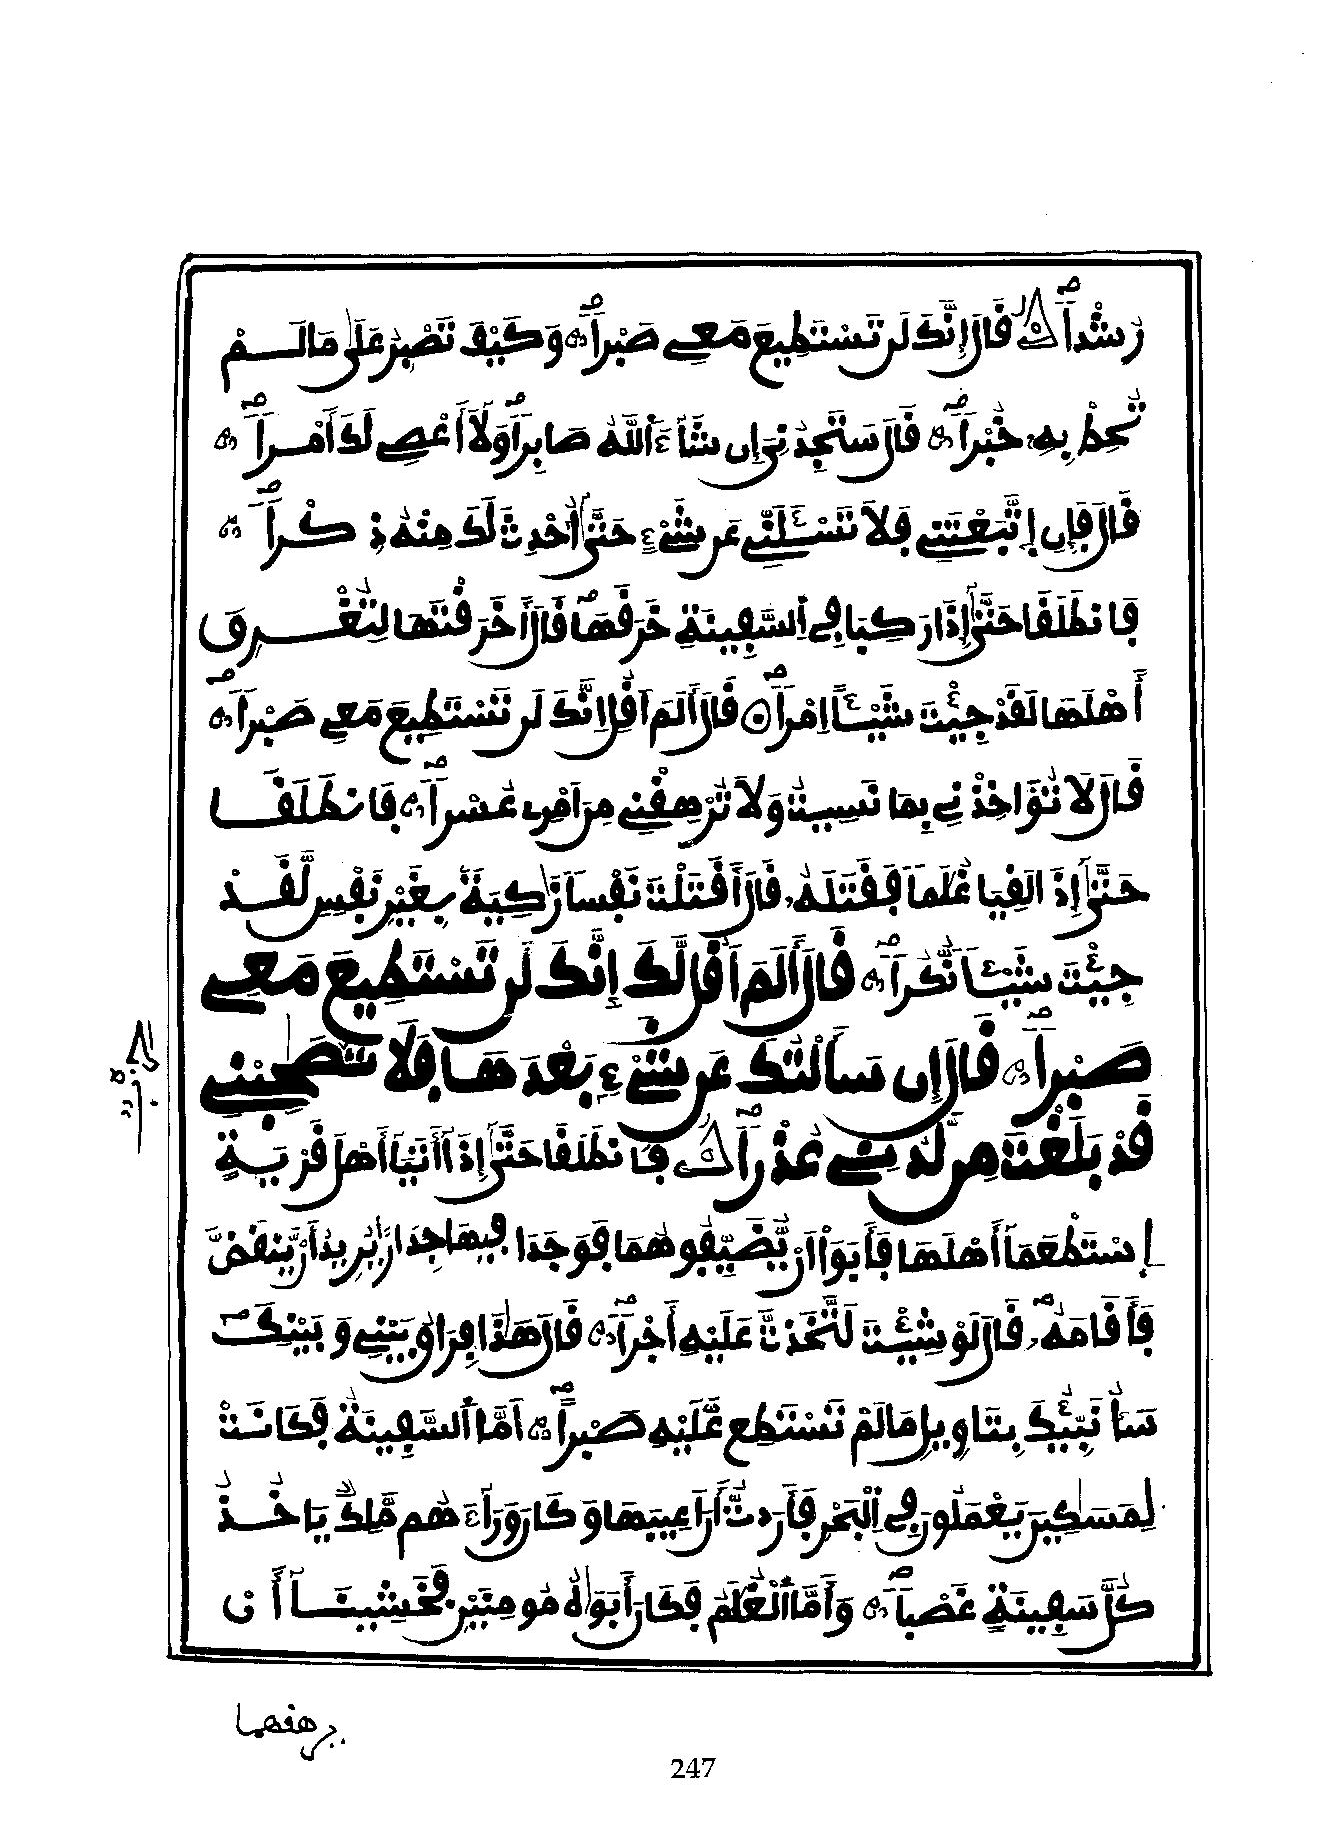 رُشْداً قَالَ إِنَّكَ لَن تَسْتَطِيعَ مَعِے صَبْراً وَكَيْفَ تَصْبِرُ عَلَىٰ مَا لَمْ
تُحِطْ بِهِۦ خُبْراً قَالَ سَتَجِدُنِيَ إِن شَآءَ اَ۬للَّهُ صَابِراً وَلَآ أَعْصِے لَكَ أَمْراً
قَالَ فَإِنِ اِ۪تَّبَعْتَنِے فَلَا تَسْـَٔلَنِّے عَن شَےْءٍ حَتَّىٰٓ أُحْدِثَ لَكَ مِنْهُ ذِكْراً
فَانطَلَقَا حَتَّىٰٓ إِذَا رَكِبَا فِے اِ۬لسَّفِينَةِ خَرَقَهَا قَالَ أَخَرَقْتَهَا لِتُغْرِقَ
أَهْلَهَا لَقَدْ جِئْتَ شَيْـًٔا اِمْراً قَالَ أَلَمَ اَقُلِ اِنَّكَ لَن تَسْتَطِيعَ مَعِے صَبْراً
قَالَ لَا تُؤَاخِذْنِے بِمَا نَسِيتُ وَلَا تُرْهِقْنِے مِنَ اَمْرِے عُسْراً فَانطَلَقَا
حَتَّىٰٓ إِذَا لَقِيَا غُلَٰماً فَقَتَلَهُۥ قَالَ أَقَتَلْتَ نَفْساً زَٰكِيَةَۢ بِغَيْرِ نَفْسٍ لَّقَدْ
جِئْتَ شَيْـٔاً نُّكُراً قَالَ أَلَمَ اَقُل لَّكَ إِنَّكَ لَن تَسْتَطِيعَ مَعِے
صَبْراً قَالَ إِن سَأَلْتُكَ عَن شَےْءِۢ بَعْدَهَا فَلَا تُصَٰحِبْنِے
قَدْ بَلَغْتَ مِن لَّدُنِے عُذْراً فَانطَلَقَا حَتَّىٰٓ إِذَآ أَتَيَآ أَهْلَ قَرْيَةٍ
اِ۪سْتَطْعَمَآ أَهْلَهَا فَأَبَوَاْ اَنْ يُّضَيِّفُوهُمَا فَوَجَدَا فِيهَا جِدَاراً يُرِيدُ أَنْ يَّنقَضَّ
فَأَقَامَهُۥ قَالَ لَوْ شِئْتَ لَتَّخَذتَّ عَلَيْهِ أَجْراً قَالَ هَٰذَا فِرَاقُ بَيْنِے وَبَيْنِكَ
سَأُنَبِّئُكَ بِتَاوِيلِ مَا لَمْ تَسْتَطِع عَّلَيْهِ صَبْراً اَمَّا اَ۬لسَّفِينَةُ فَكَانَتْ
لِمَسَٰكِينَ يَعْمَلُونَ فِے اِ۬لْبَحْرِ فَأَرَدتُّ أَنَ اَعِيبَهَا وَكَانَ وَرَآءَهُم مَّلِكٌ يَاخُذُ
كُلَّ سَفِينَةٍ غَصْباً وَأَمَّا اَ۬لْغُلَٰمُ فَكَانَ أَبَوَٰهُ مُومِنَيْنِ فَخَشِينَآ أَنْ
يرهقهما
247